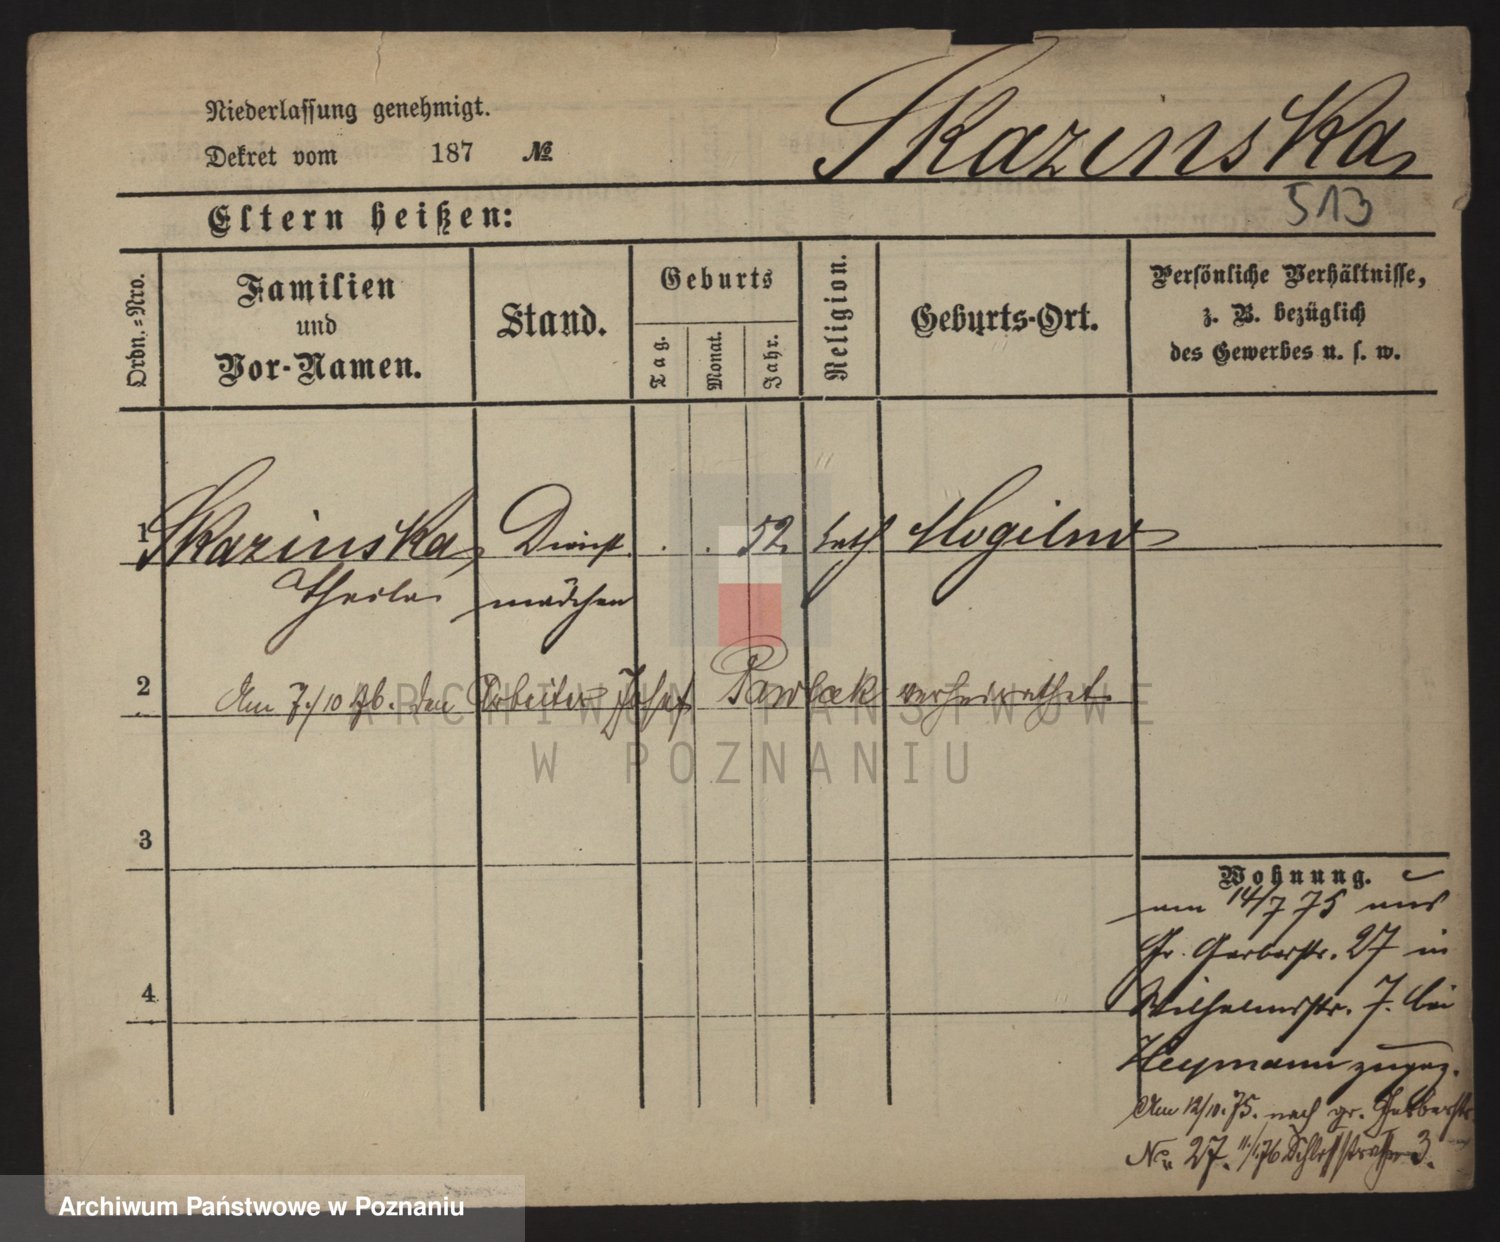 Niederlassung genehmigt.
Dekret vom 187 №
Skazinska
513
Eltern heißen:
Ordn.-Nro.
Familien
und
Vor-Namen.
Stand.
Geburts
Tag.
Monat.
Jahr.
Religion.
Geburts-Ort.
Persönliche Verhältnisse,
z. B. bezüglich
des Gewerbes u. s. w.
1 Skazinska Dienst . . 52 kath Mogilno
Thecla mädchen
2 Am 7./10 76. den Arbeiter Josef Pawlak verheirathet
3
4
Wohnung.
am 14/7 75 aus
Gr. Gerberstr. 27 in
Wilhelmsstr. 7. bei
Heymann zugez.
Am 12/10. 75. nach gr. Gerberstr.
No. 27. 11/1 76 Schloßstraße 3.
ARCHIWUM PAŃSTWOWE
W POZNANIU
Archiwum Państwowe w Poznaniu